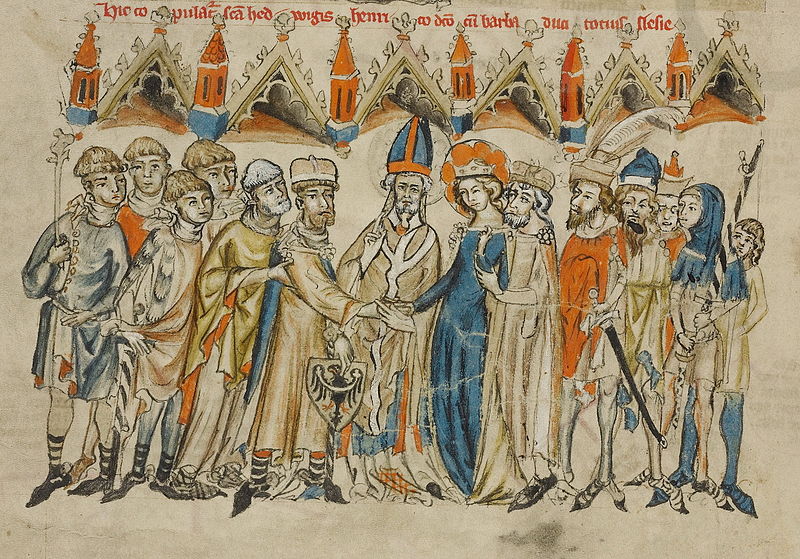 Hic co pulat̄ scā hed wigis henri co dc̄o cū barba duci tocius slesie